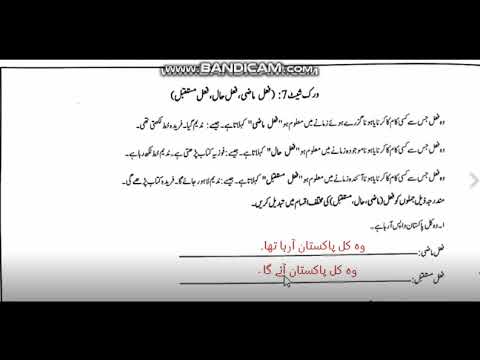 www.BANDICAM.com
ورک شیٹ 7: (فعل ماضی، فعل حال، فعل مستقبل)
وہ فعل جس سے کسی کام کا کرنا یا ہونا گزرے ہوئے زمانے میں معلوم ہو "فعل ماضی" کہلاتا ہے۔ جیسے: ندیم گیا۔ فریدہ خط لکھتی تھی۔
وہ فعل جس سے کسی کام کا کرنا یا ہونا موجودہ زمانے میں معلوم ہو "فعل حال" کہلاتا ہے۔ جیسے: فوزیہ کتاب پڑھتی ہے۔ ندیم خط لکھ رہا ہے۔
وہ فعل جس سے کسی کام کا کرنا یا ہونا آئندہ زمانے میں معلوم ہو "فعل مستقبل" کہلاتا ہے۔ جیسے: ندیم لاہور جائے گا۔ فریدہ کتاب پڑھے گی۔
مندرجہ ذیل جملوں کو فعل (ماضی، حال، مستقبل) کی مختلف اقسام میں تبدیل کریں۔
۱۔ وہ کل پاکستان واپس آ رہا ہے۔
فعل ماضی: وہ کل پاکستان آرہا تھا۔
فعل مستقبل: وہ کل پاکستان آئے گا۔